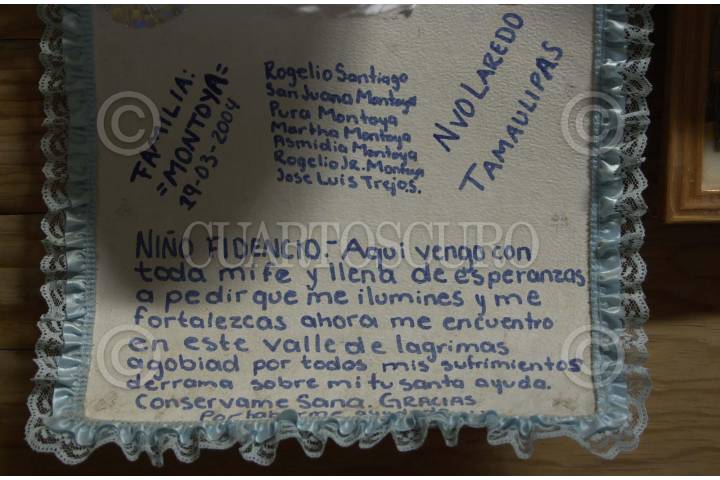 FAMILIA:
=MONTOYA=
19-03-2004
Rogelio Santiago
San Juana Montoya
Pura Montoya
Martha Montoya
Asmidia Montoya
Rogelio Jr. Montoya
Jose Luis Trejo.S.
NVO LAREDO
TAMAULIPAS
NIÑO FIDENCIO.- Aqui vengo con
toda mi fe y llena de esperanzas
a pedir que me ilumines y me
fortalezcas ahora me encuentro
en este valle de lagrimas
agobiad por todos mis sufrimientos
derrama sobre mi tu santa ayuda.
Conservame Sana. GRACIAS
Por
© CUARTOSCURO ©
© ©